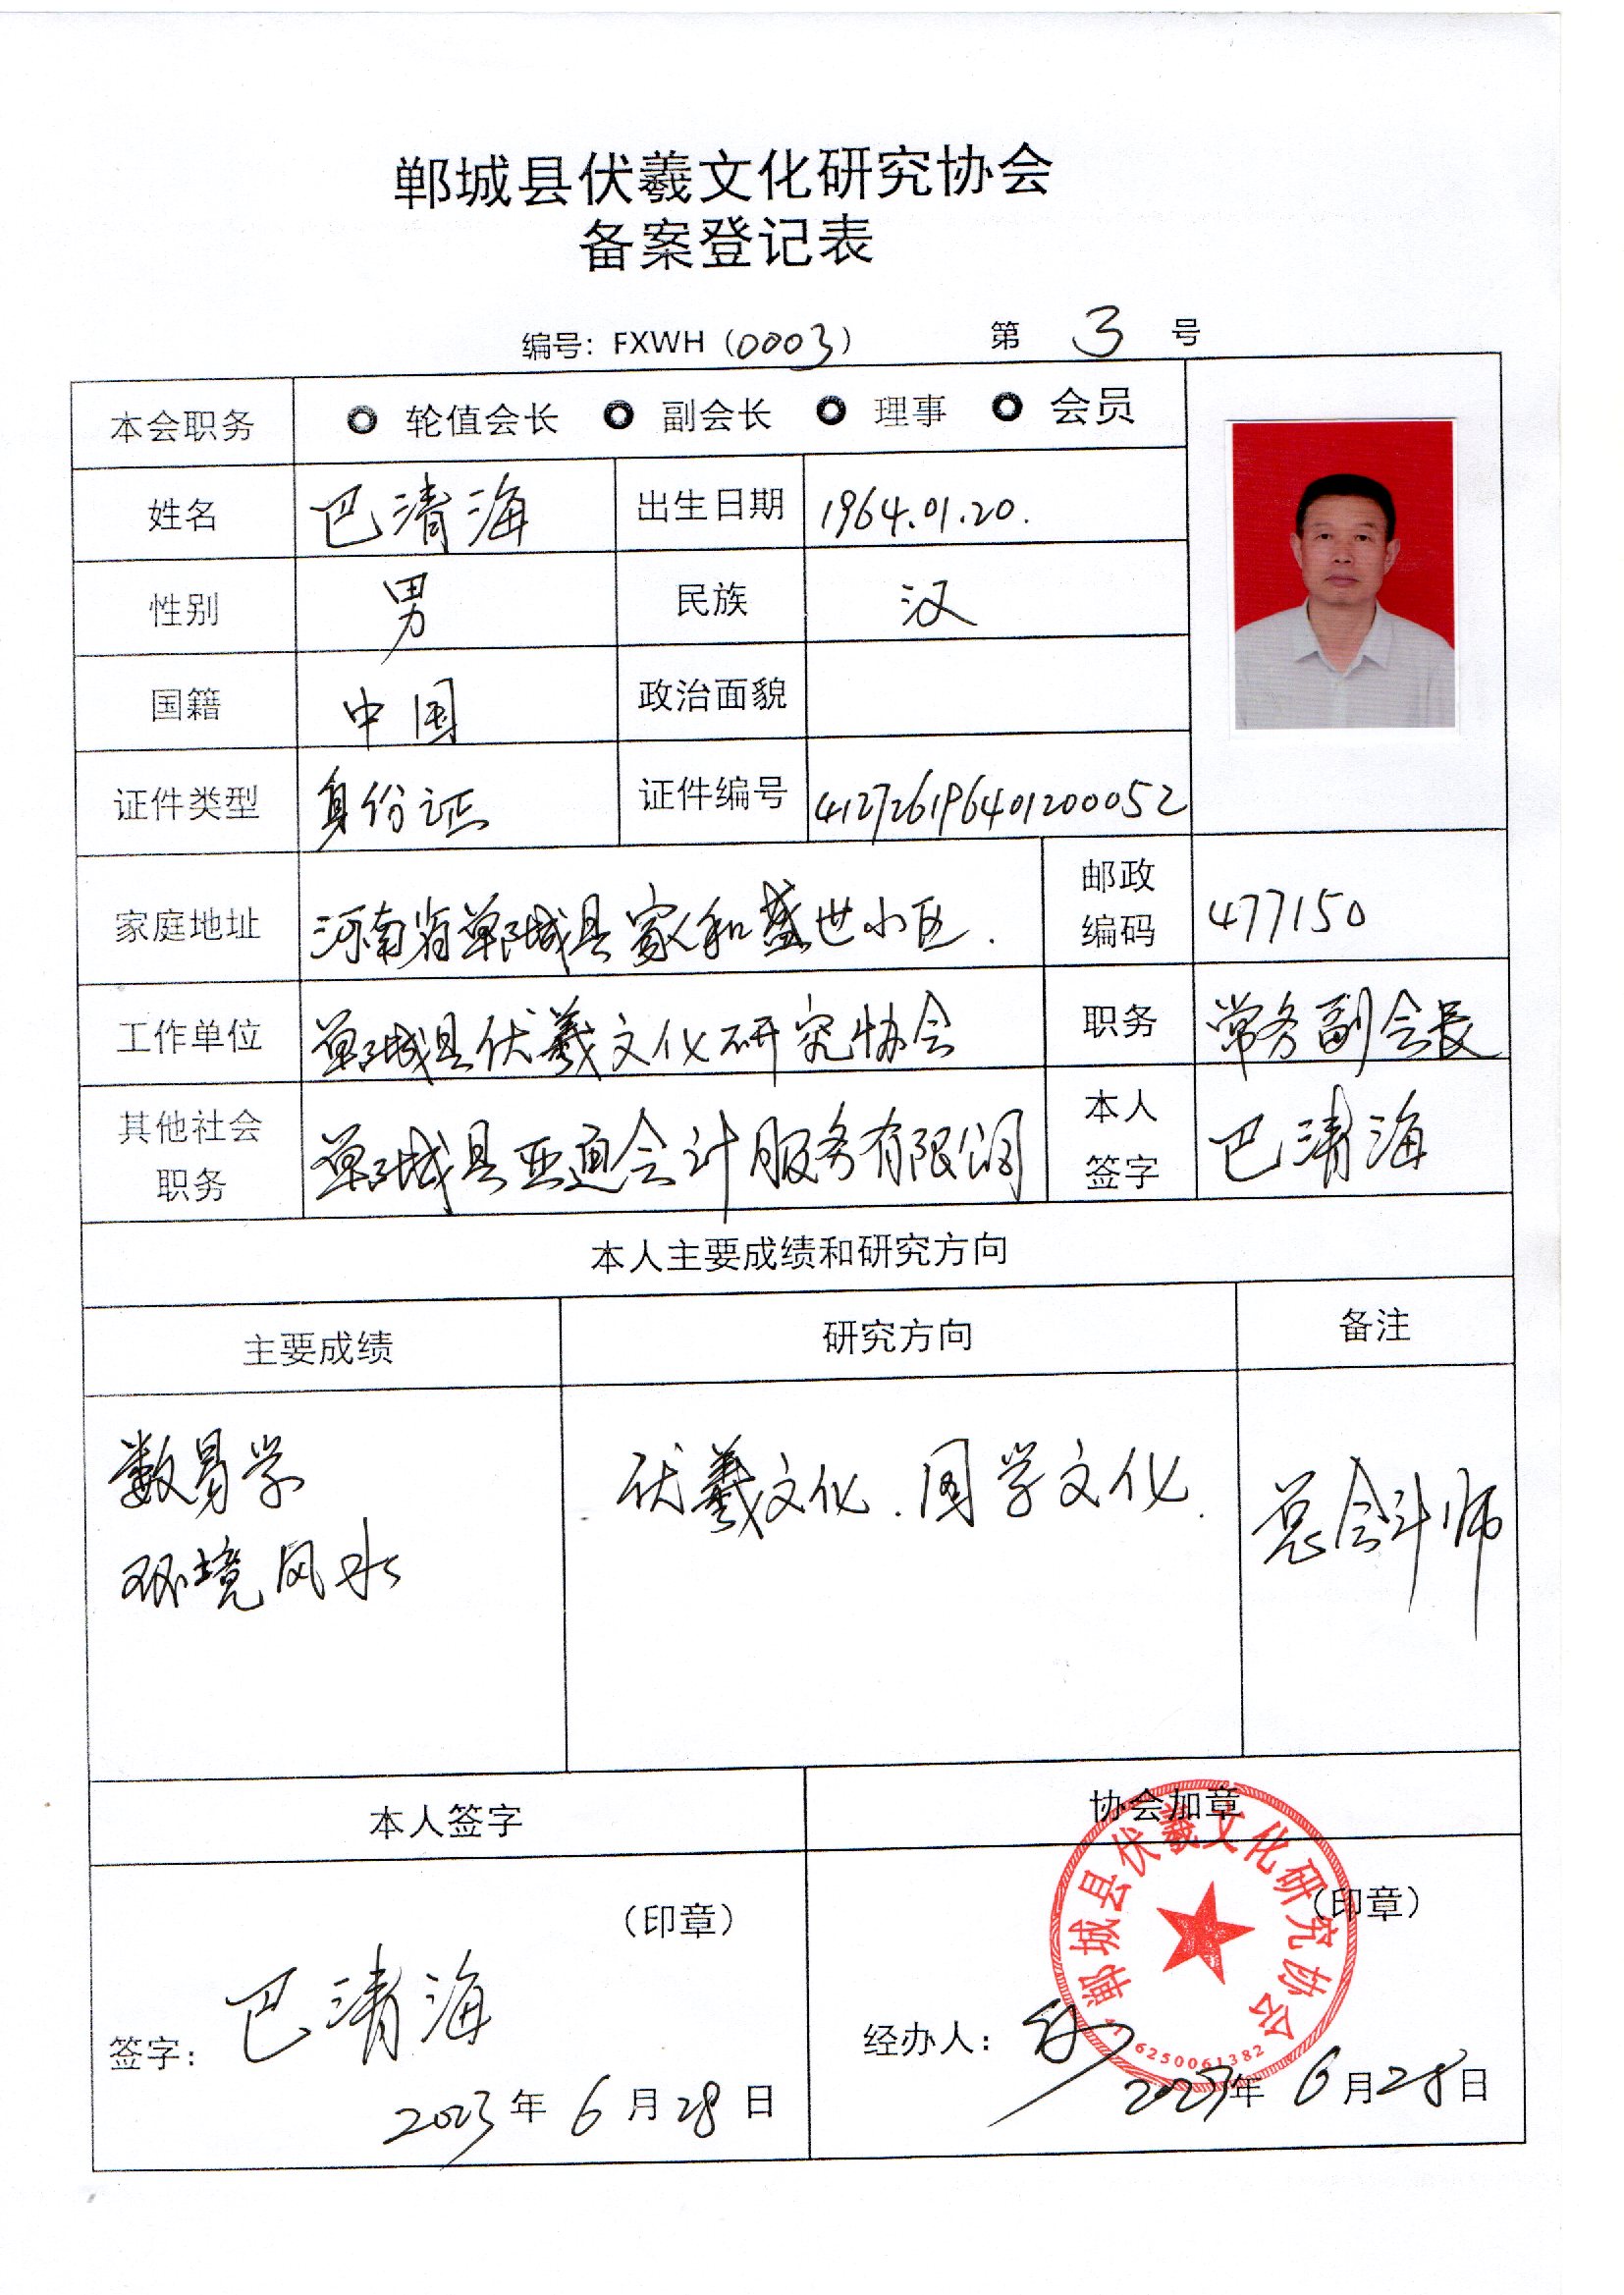 郸城县伏羲文化研究协会
备案登记表
编号：FXWH（0003） 第 3 号
本会职务 轮值会长 副会长 理事 会员
姓名 巴清海 出生日期 1964.01.20.
性别 男 民族 汉
国籍 中国 政治面貌
证件类型 身份证 证件编号 412726196401200052
家庭地址 河南省郸城县家和盛世小区. 邮政编码 477150
工作单位 郸城县伏羲文化研究协会 职务 常务副会长
其他社会职务 郸城县亚通会计服务有限公司 本人签字 巴清海
本人主要成绩和研究方向
主要成绩 研究方向 备注
数易学
环境风水
伏羲文化.国学文化.
总会计师
本人签字 协会加章
（印章） （印章）
郸城县伏羲文化研究协会
签字： 巴清海 经办人：
2023年 6月28日 2023年 6月28日